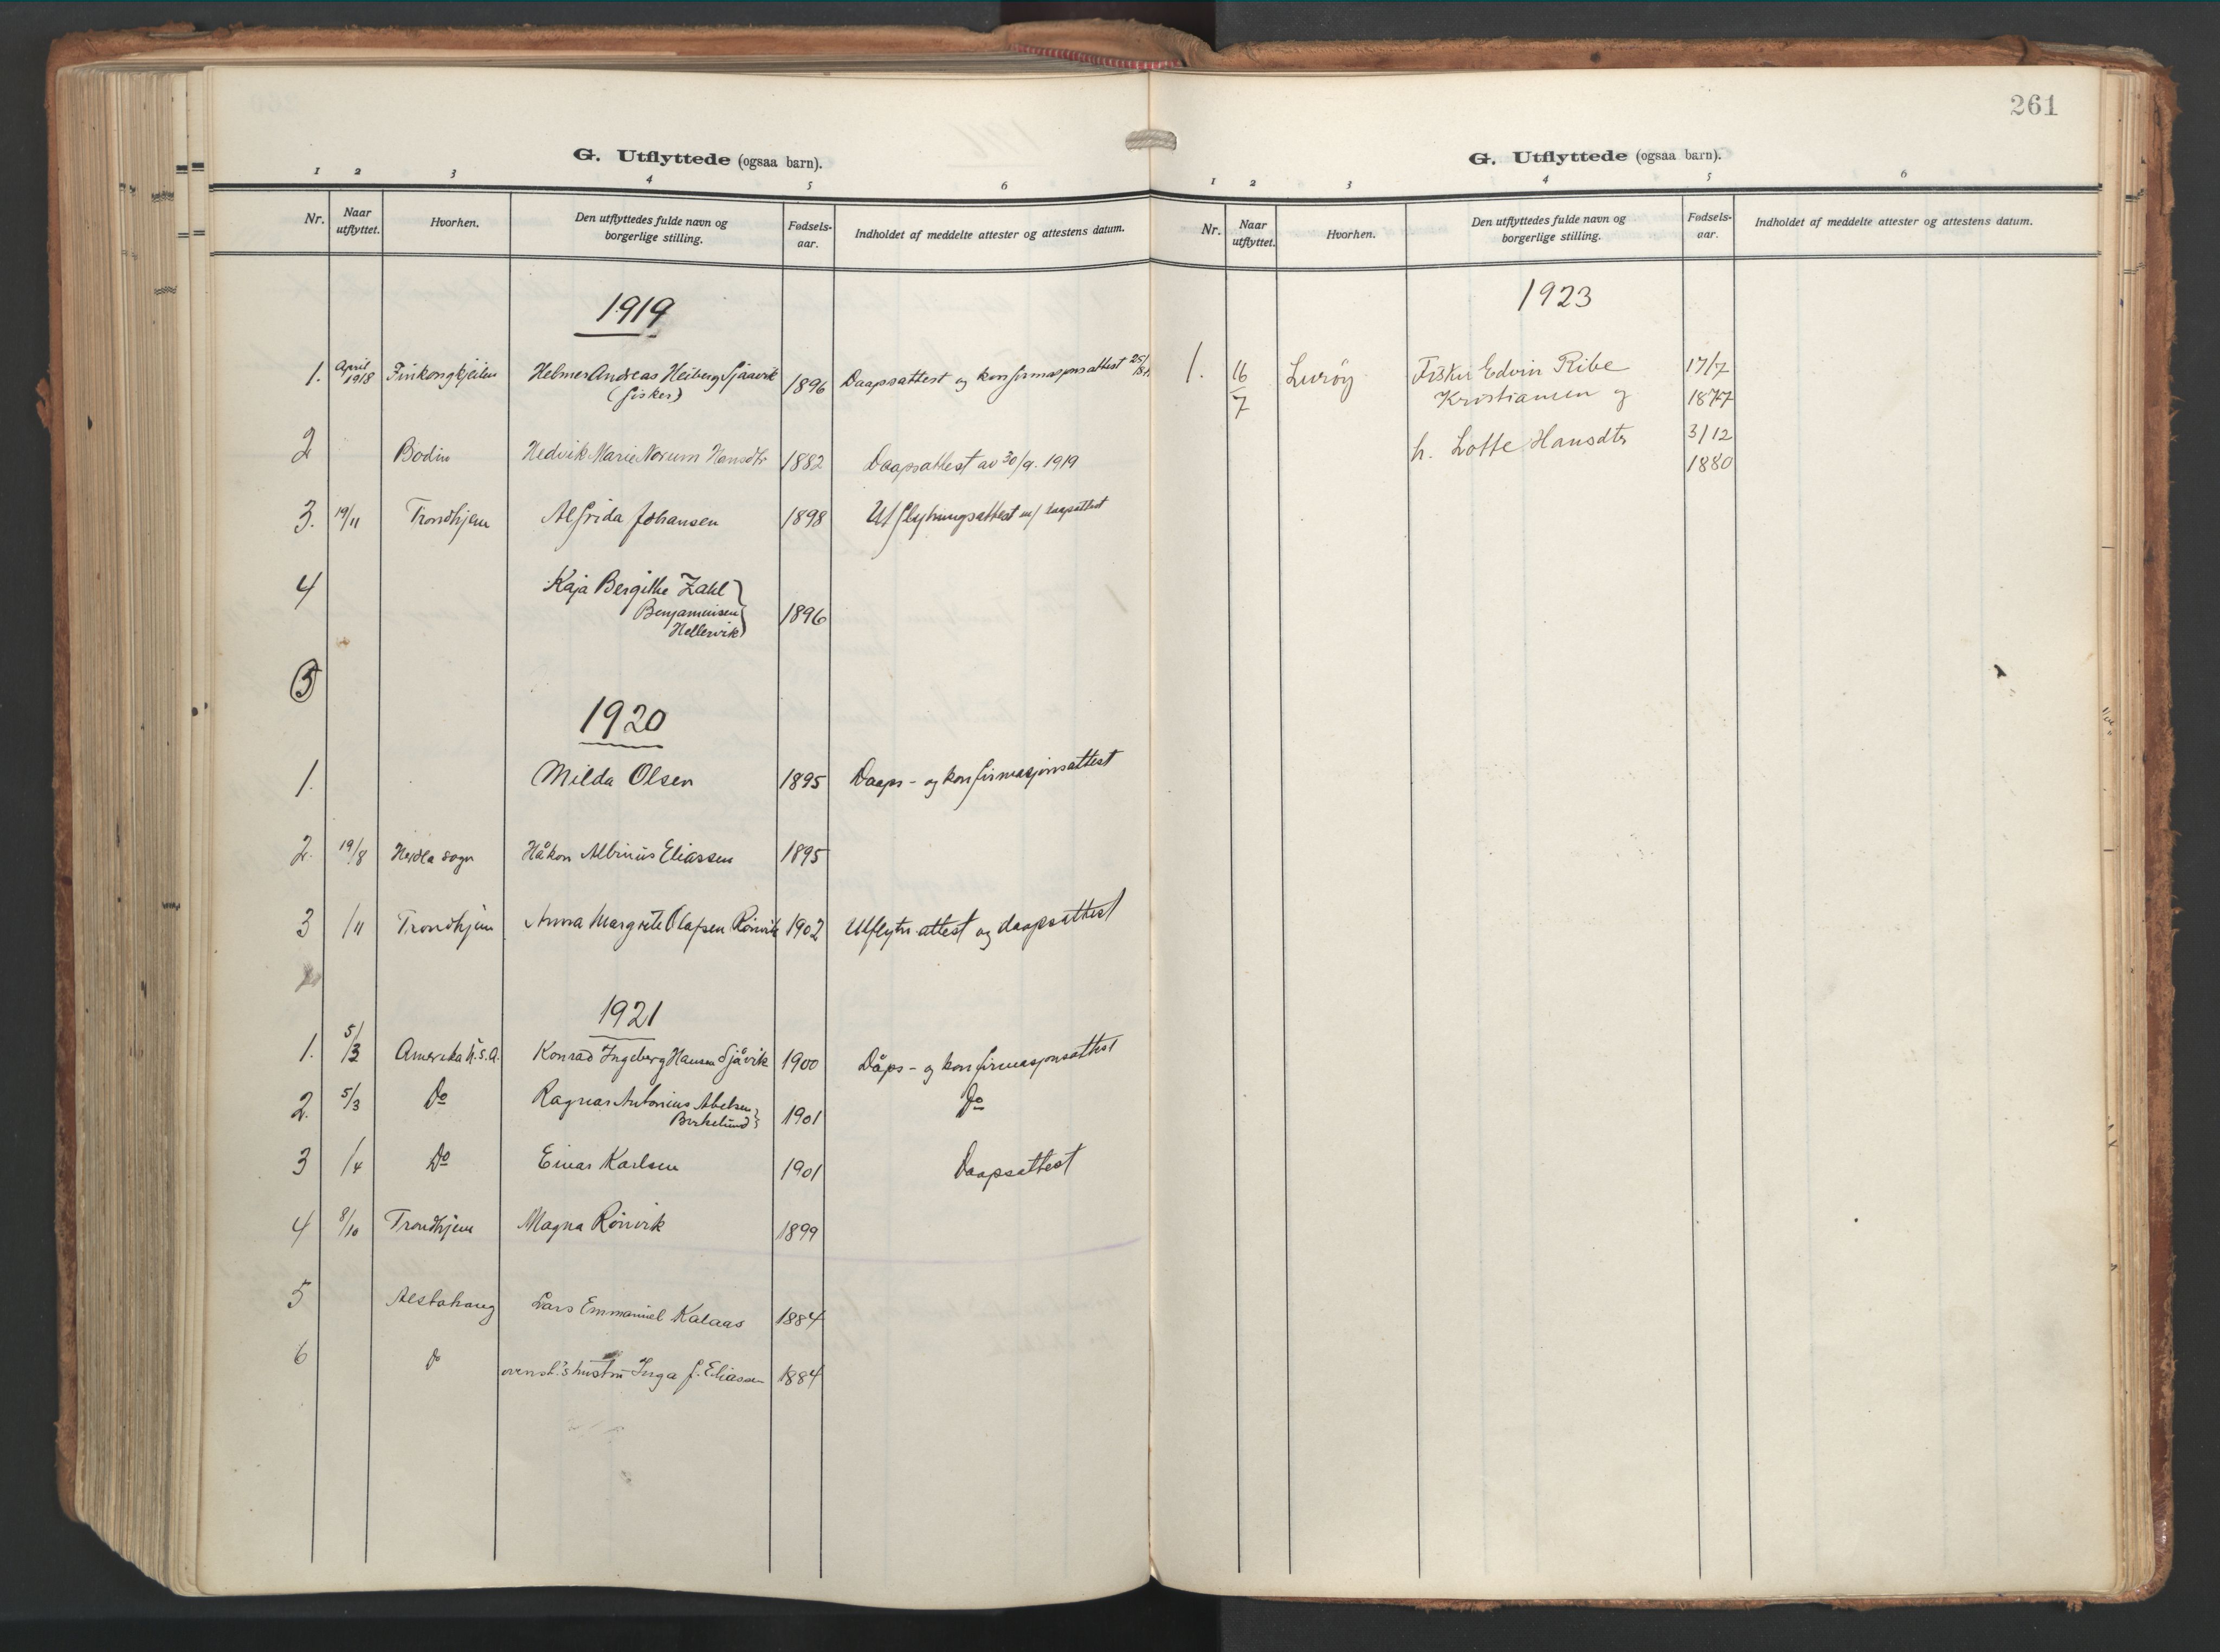 261
G. Utflyttede (ogsaa barn).
1 2 3 4 5 6
Nr. Naar utflyttet. Hvorhen. Den utflyttedes fulde navn og borgerlige stilling. Fødsels-aar. Indholdet af meddelte attester og attestens datum.
1919
1. April 1918 Finkongkjeilen Helmer Andreas Heiberg Sjåavik 1896 Daapsattest og konfirmasjonsattest
(fisker)
2 Bodin Hedvik Marie Norum Hansdtr 1882 Daapsattest av 30/9. 1919
3. 19/11 Trondhjem Alfrida Johansen 1898 Utflytningsattest m/ daapsattest
4 Kaja Bergitte Zahl
Benjaminsen 1896
Hellesvik
5
1920
1. Milda Olsen 1895 Daaps- og konfirmasjonsattest
2. 19/8 Herdla sogn Håkon Albinius Eliassen 1895
3 /11 Trondhjem Anna Margrete Olafsen Rönvik 1902 Utflytn. attest og daapsattest
1921
1. 5/3 Amerika U.S.A. Konrad Ingeberg Hansen Sjåvik 1900 Dåps- og konfirmasjonsattest
2. 5/3 Do Ragnar Antonius Abelsen 1901 Do
Birkelund
3 /4 Do Einar Karlsen 1901 Daapsattest
4 8/10 Trondhjem Magna Rönvik 1899
5 Alstahaug Lars Emmanuel Kalaas 1884
6 Do ovenst.'s hustru Inga J. Eliassen 1884
G. Utflyttede (ogsaa barn).
1 2 3 4 5 6
Nr. Naar utflyttet. Hvorhen. Den utflyttedes fulde navn og borgerlige stilling. Fødsels-aar. Indholdet af meddelte attester og attestens datum.
1923
1. 16/7 Lurøy Fisker Edvin Ribe 17/7
Kristiansen og 1877
h. Lotte Hansdtr 3/12
1880